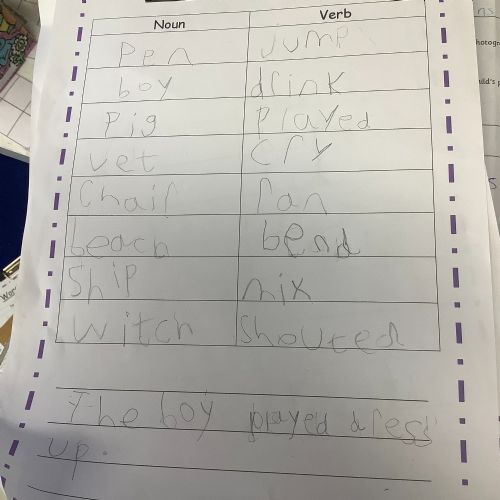 Noun Verb
Pen Jump
boy drink
Pig Played
vet Cry
Chair ran
beach bend
Ship mix
Witch Shouted
The boy played dress
up.